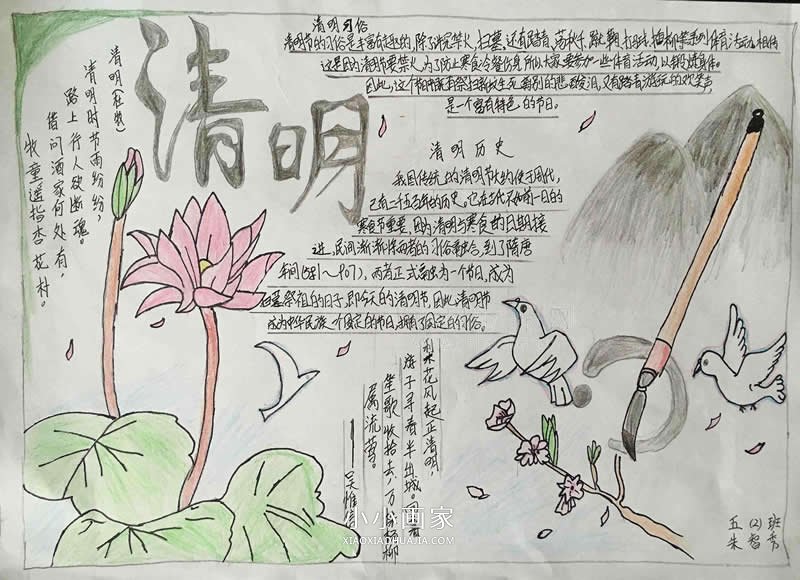 清明
清明习俗
清明节的习俗是丰富有趣的,除了讲究禁火,扫墓,还有踏青,荡秋千,蹴鞠,打马球,插柳等一系列体育活动,相传
这是因为清明节要禁火,为了防止寒食冷餐伤身,所以大家要参加一些体育活动,以锻炼身体。
因此,这个节日中既有祭扫新坟生死离别的悲酸泪,又有踏青游玩的欢笑声,
是一个富有特色的节日。
清明历史
我国传统的清明节大约始于周代,
已有二千五百年的历史。它在古代不如前一日的
寒食节重要,因为清明与寒食的日期接
近,民间渐渐将两者的习俗融合,到了隋唐
年间(581~907),两者正式融为一个节日,成为
扫墓祭祖的日子,即今天的清明节,因此清明节
成为中华民族一个固定的节日,拥有了固定的习俗。
清明(杜牧)
清明时节雨纷纷,
路上行人欲断魂。
借问酒家何处有,
牧童遥指杏花村。
梨花风起正清明,
游子寻春半出城。日暮
笙歌收拾去,万株杨柳
属流莺。
——吴惟
五(2)班
朱智秀
小小画家
XIAOXIAOHUAJIA.COM